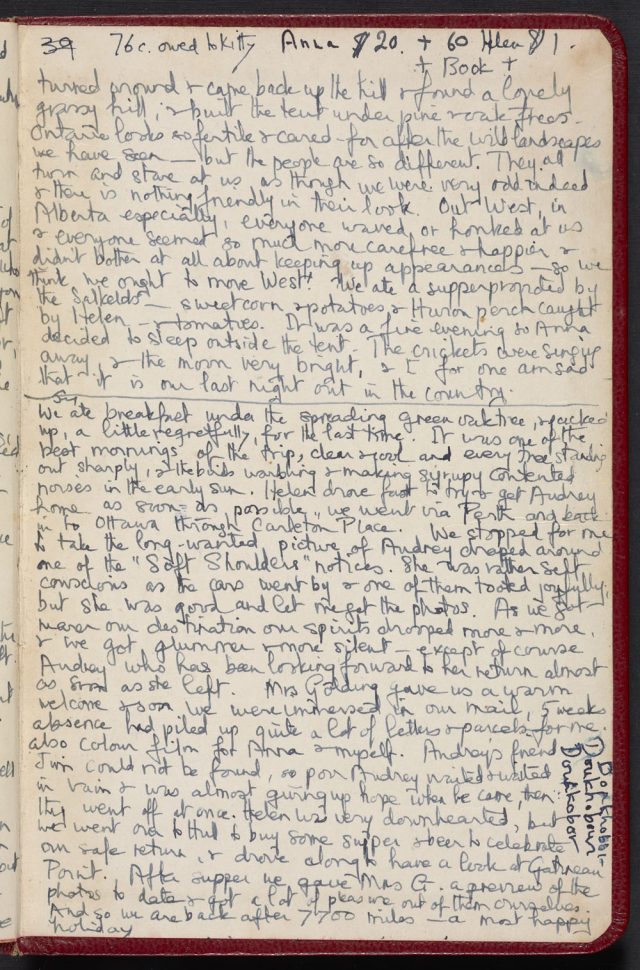 39 76c. owed to Kitty Anna $20. + 60 Helen $1.
+ Book +
turned around & came back up the hill & found a lonely
grassy hill, & built the tent under pine & oak trees.
Ontario looks so fertile & cared-for after the wild landscapes
we have seen — but the people are so different. They all
turn and stare at us as though we were very odd indeed
& there is nothing friendly in their look. Out West, in
Alberta especially, everyone waved or honked at us
& everyone seemed so much more carefree & happier &
didn't bother at all about keeping up appearances — so we
think we ought to move West! We ate a supper provided by
the Salkelds — sweetcorn & potatoes, & Huron perch caught
by Helen — & tomatoes. It was a fine evening so Anna
decided to sleep outside the tent. The crickets were singing
away, & the moon very bright, & I for one am sad
that it is our last night out in the country.
We ate breakfast under the spreading green oak tree, & packed
up, a little regretfully, for the last time. It was one of the
best mornings of the trip, clear & cool and every tree standing
out sharply, & the birds warbling & making syrupy contented
noises in the early sun. Helen drove fast to try & get Audrey
home as soon as possible, we went via Perth and back
in to Ottawa through Carleton Place. We stopped for me
to take the long-wanted picture of Audrey draped around
one of the "Soft Shoulders" notices. She was rather self
conscious as the cars went by & one of them tooted joyfully,
but she was good and let me get the photos. As we got
nearer our destination our spirits dropped more & more,
& we got glummer & more silent — except of course
Audrey who has been looking forward to her return almost
as soon as she left. Mrs Golding gave us a warm
welcome & soon we were immersed in our mail, 5 weeks
absence had piled up quite a lot of letters & parcels for me.
also colour film for Anna & myself. Audrey's friend
Jim could not be found, so poor Audrey waited & waited
in vain & was almost giving up hope when he came, then
they went off at once. Helen was very downhearted, but
we went over to Hull to buy some supper & beer to celebrate
our safe return, & drove along to have a look at Gatineau
Point. After supper we gave Mrs G. a preview of the
photos to date & got a lot of pleasure out of them ourselves.
And so we are back after 7700 miles — a most happy
holiday
Doukhobour
Doukobor